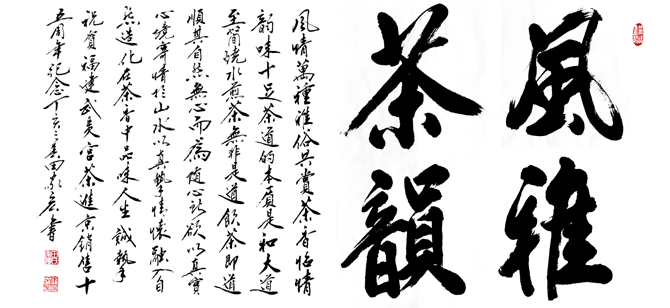 風雅
茶韻
風情萬種雅俗共賞茶香怡情
韵味十足茶道的本質是和大道
至簡燒水煎茶無非是道飲茶即道
順其自然無心而為随心所欲以真實
心境寄情於山水以真摯情懷融入自
然造化在茶香中品味人生誠摯
祝賀福建武夷宮茶進京銷售十
五周年紀念丁亥之 田 書